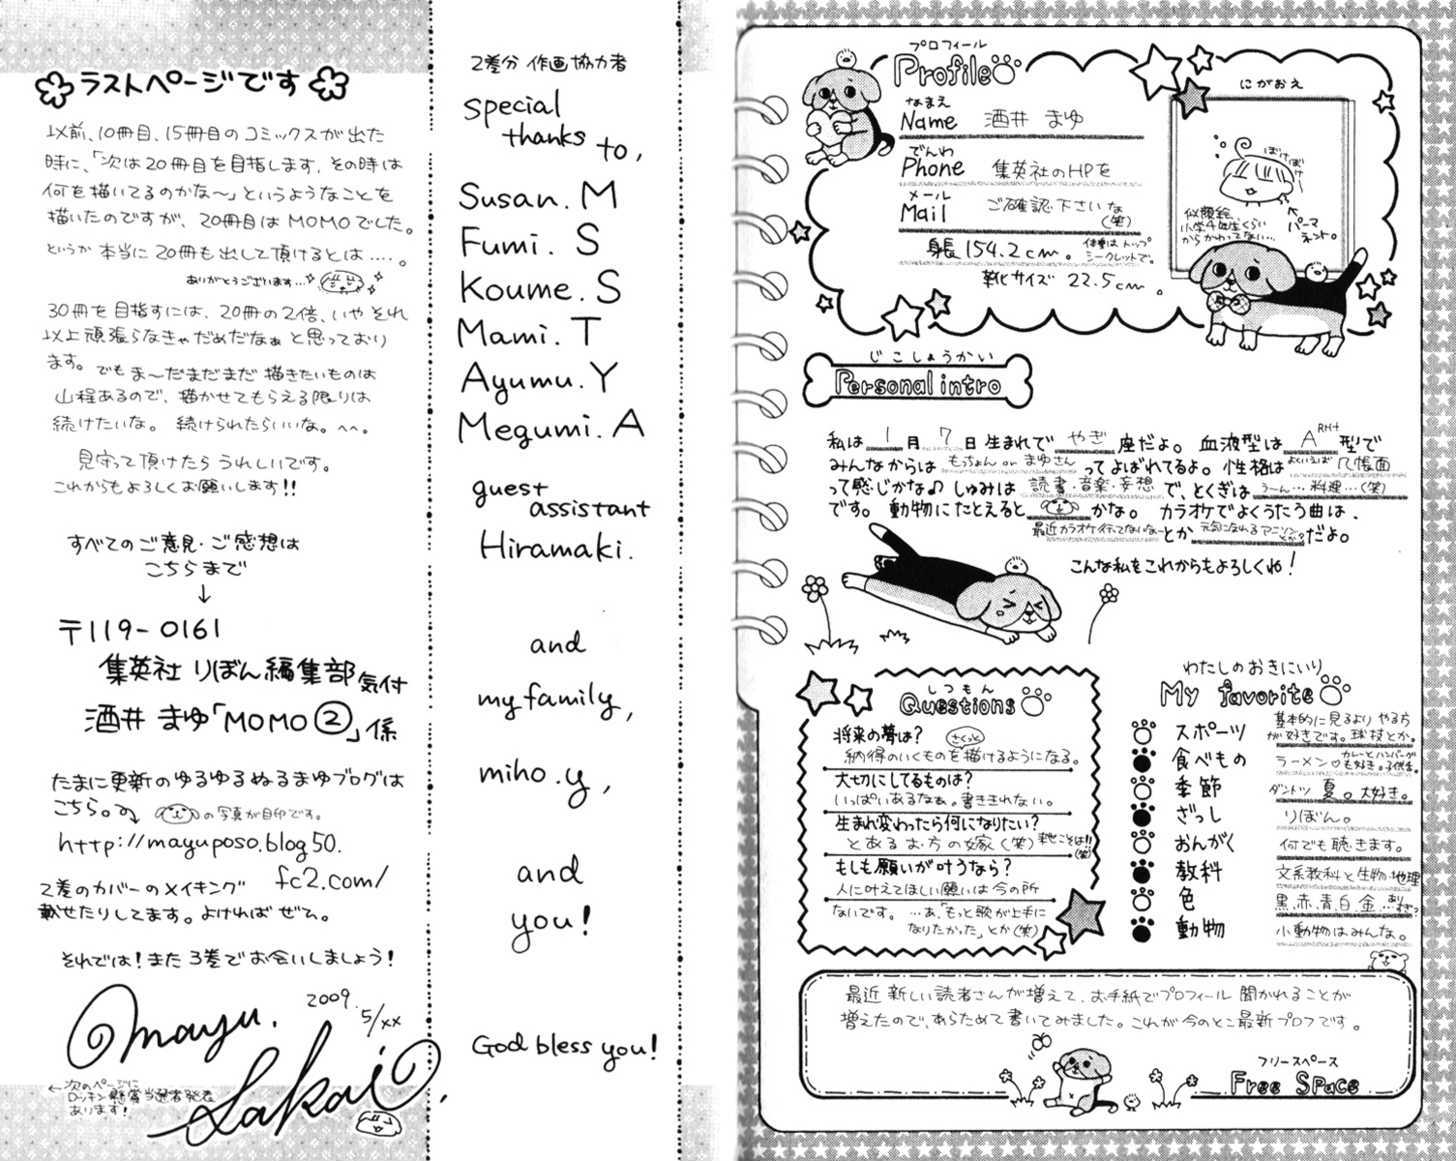 プロフィール
Profile
なまえ
Name 酒井 まゆ
でんわ
Phone 集英社のHPを
メール
Mail ご確認下さいな
(笑)
身長154.2cm。体重はトップ
シークレットで。
靴サイズ 22.5cm。
にがおえ
ぼけぼけ〜
似顔絵、
小学4年生くらい
からかわってない…
パーマ
ネント。
じこしょうかい
Personal intro
私は 1月 7日生まれで やぎ 座だよ。血液型は A RH+ 型で
みんなからは もっちょん or まゆさん ってよばれてるよ。性格は よくいえば 几帳面
って感じかな♪ しゅみは 読書・音楽・妄想 で、とくぎは うーん…料理…(笑)
です。動物にたとえると かな。カラオケでよくうたう曲は、
最近カラオケ行ってないなー とか 元気になれるアニソン だよ。
こんな私をこれからもよろしくね!
しつもん
Questions
将来の夢は?
さくっと
納得のいくものを描けるようになる。
大切にしてるものは?
いっぱいあるなぁ。書ききれない。
生まれ変わったら何になりたい?
とあるお方の嫁(笑) 来世こそは!!
(笑)
もしも願いが叶うなら?
人に叶えてほしい願いは今の所
ないです。…あ、「もっと歌が上手に
なりたかった」とか(笑)
わたしのおきにいり
My favorite
スポーツ 基本的に見るよりやる方
が好きです。球技とか。
食べもの ラーメン♡ カレーとハンバーグ
も好き。子供舌。
季節 ダントツ 夏。大好き。
ざっし りぼん。
おんがく 何でも聴きます。
教科 文系教科と生物・地理
色 黒、赤、青、白、金…
動物 小動物はみんな。
最近 新しい読者さんが増えて、お手紙でプロフィール聞かれることが
増えたので、あらためて書いてみました。これが今のとこ最新プロフです。
フリースペース
Free Space
2巻分 作画協力者
special
thanks to,
Susan. M
Fumi. S
Koume. S
Mami. T
Ayumu. Y
Megumi. A
guest
assistant
Hiramaki.
and
my family,
miho.y,
and
you!
God bless you!
ラストページです
以前、10冊目、15冊目のコミックスが出た
時に、「次は20冊目を目指します。その時は
何を描いてるのかな〜」というようなことを
描いたのですが、20冊目はMOMOでした。
というか本当に20冊も出して頂けるとは….。
ありがとうございます…
30冊を目指すには、20冊の2倍、いやそれ
以上頑張らなきゃだめだなぁと思っており
ます。でもま〜だまだまだ描きたいものは
山程あるので、描かせてもらえる限りは
続けたいな。続けられたらいいな。^^。
見守って頂けたらうれしいです。
これからもよろしくお願いします!!
すべてのご意見・ご感想は
こちらまで
↓
〒119-0161
集英社 りぼん編集部気付
酒井 まゆ「MOMO②」係
たまに更新のゆるゆるぬるまゆブログは
こちら。 の写真が目印です。
http://mayuposo.blog50.
fc2.com/
2巻のカバーのメイキング
載せたりしてます。よければぜひ。
それでは!また3巻でお会いしましょう!
2009.
5/xx
mayu.
Sakai,
←次のページに
ロッキン懸賞当選者発表
あります!